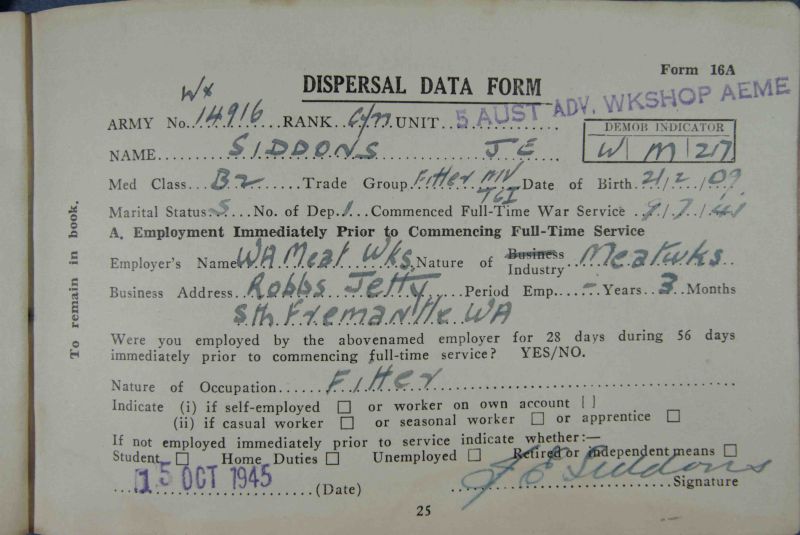 Form 16A
DISPERSAL DATA FORM
Wx
ARMY No. 14916 RANK Cfn UNIT 5 AUST ADV. WKSHOP AEME
DEMOB INDICATOR
W M 217
NAME SIDDONS J E
Med Class B2 Trade Group Fitter MV Date of Birth 21/2/09
TGI
Marital Status S No. of Dep. 1 Commenced Full-Time War Service 9/7/41
A. Employment Immediately Prior to Commencing Full-Time Service
Employer's Name WA Meat Wks Nature of Business Industry Meatwks
Business Address Robbs Jetty Period Emp. - Years 3 Months
Sth Fremantle WA
Were you employed by the abovenamed employer for 28 days during 56 days
immediately prior to commencing full-time service? YES/NO.
Nature of Occupation Fitter
Indicate (i) if self-employed □ or worker on own account [ ]
(ii) if casual worker □ or seasonal worker □ or apprentice □
If not employed immediately prior to service indicate whether:—
Student □ Home Duties □ Unemployed □ Retired or independent means □
15 OCT 1945 (Date) J E Siddons Signature
25
To remain in book.